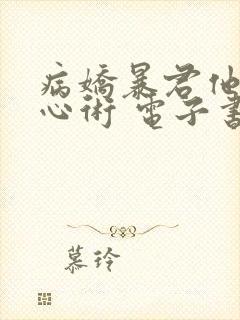 病嬌暴君他
心術 電子書
慕玲